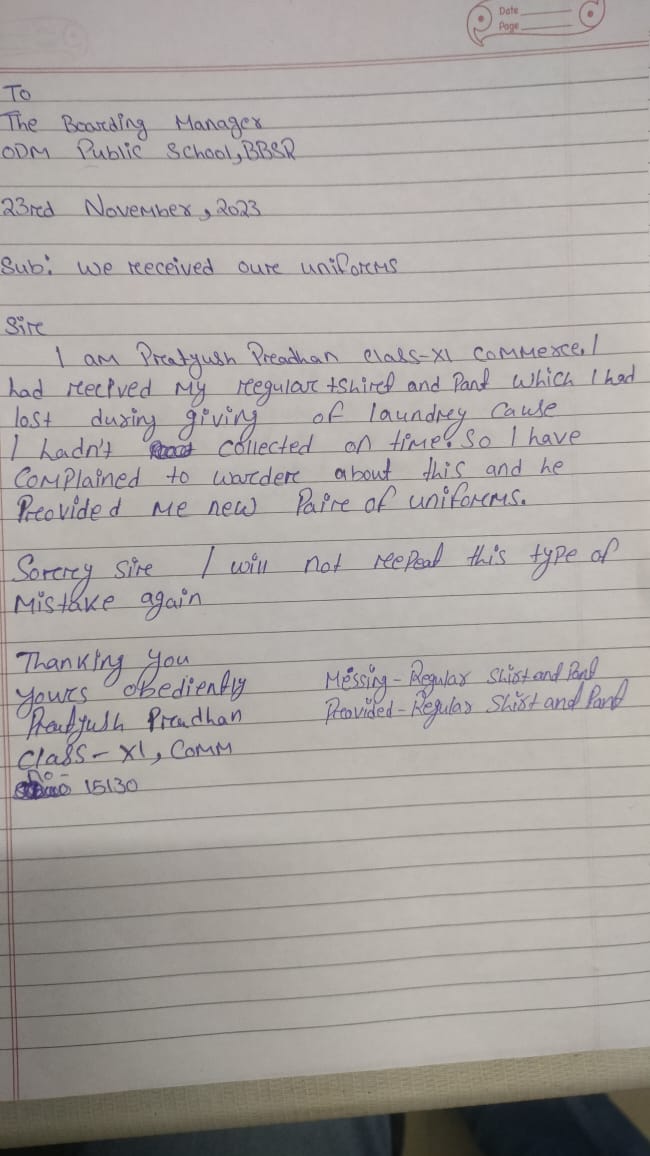 Date
Page
To
The Boarding Manager
ODM Public School, BBSR
23rd November, 2023
Sub: we received our uniforms
Sir
I am Pratyush Pradhan class-XI Commerce. I
had recived my regular tshirt and Pant which I had
lost during giving of laundrey cause
I hadn't collected on time. So I have
complained to warder about this and he
Provided me new Pair of uniforms.
Sorry Sir I will not repeat this type of
Mistake again
Thanking you
yours obediently
Pratyush Pradhan
Class-XI, Comm
no- 15130
Messing - Regular Shirt and Pant
Provided - Regular Shirt and Pant